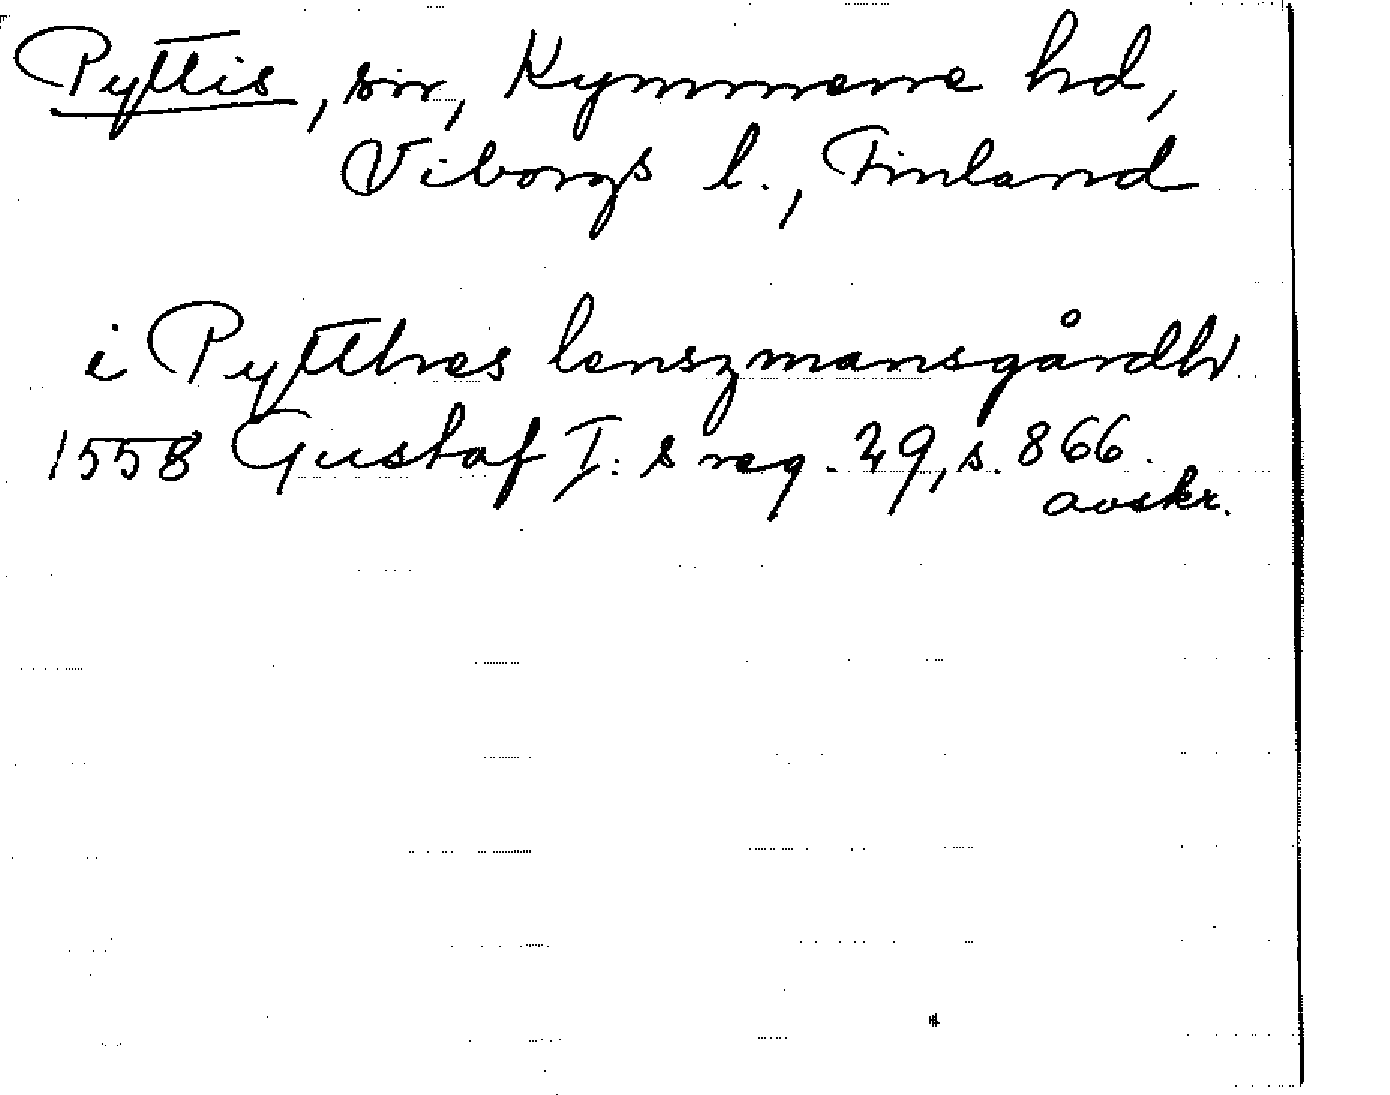 Pyttis, sn, Kymmene hd,
Viborgs l., Finland
i Pytthes lenszmansgårdh
1558 Gustaf I:s reg. 29, s. 866.
avskr.